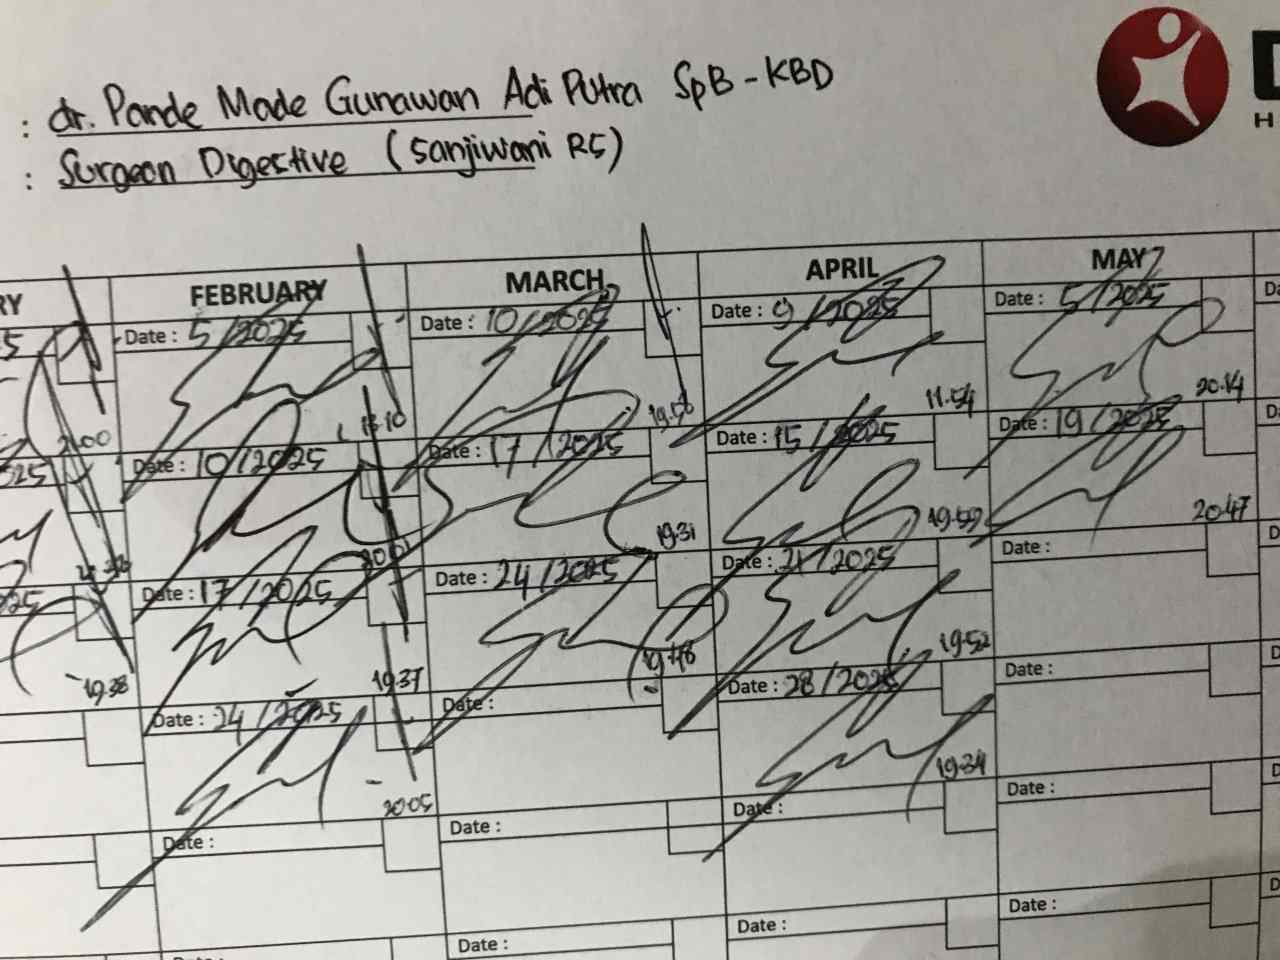 : dr. Pande Made Gunawan Adi Putra SpB - KBD
: Surgeon Digestive (Sanjiwani RS)
RY FEBRUARY MARCH APRIL MAY
5 Date : 5 /2025 Date : 10/2025 Date : 9 /2025 Date : 5 /2025
21.00 19.56 11.54 20.14
025 Date : 10/2025 Date : 17 /2025 Date : 15 /2025 Date : 19 /2025
19.31 19.59 20.47
025 Date : 17/2025 Date : 24 /2025 Date : 21 /2025 Date :
19.38 19.37 19.48 19.52
Date : 24 /2025 Date : Date : 28 /2025 Date :
20.05 19.34
Date : Date : Date : Date :
Date : Date : Date :